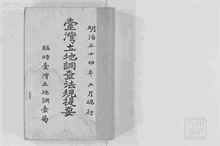 明治三十四年六月現行
臺灣土地調査法規提要
臨時臺灣土地調查局